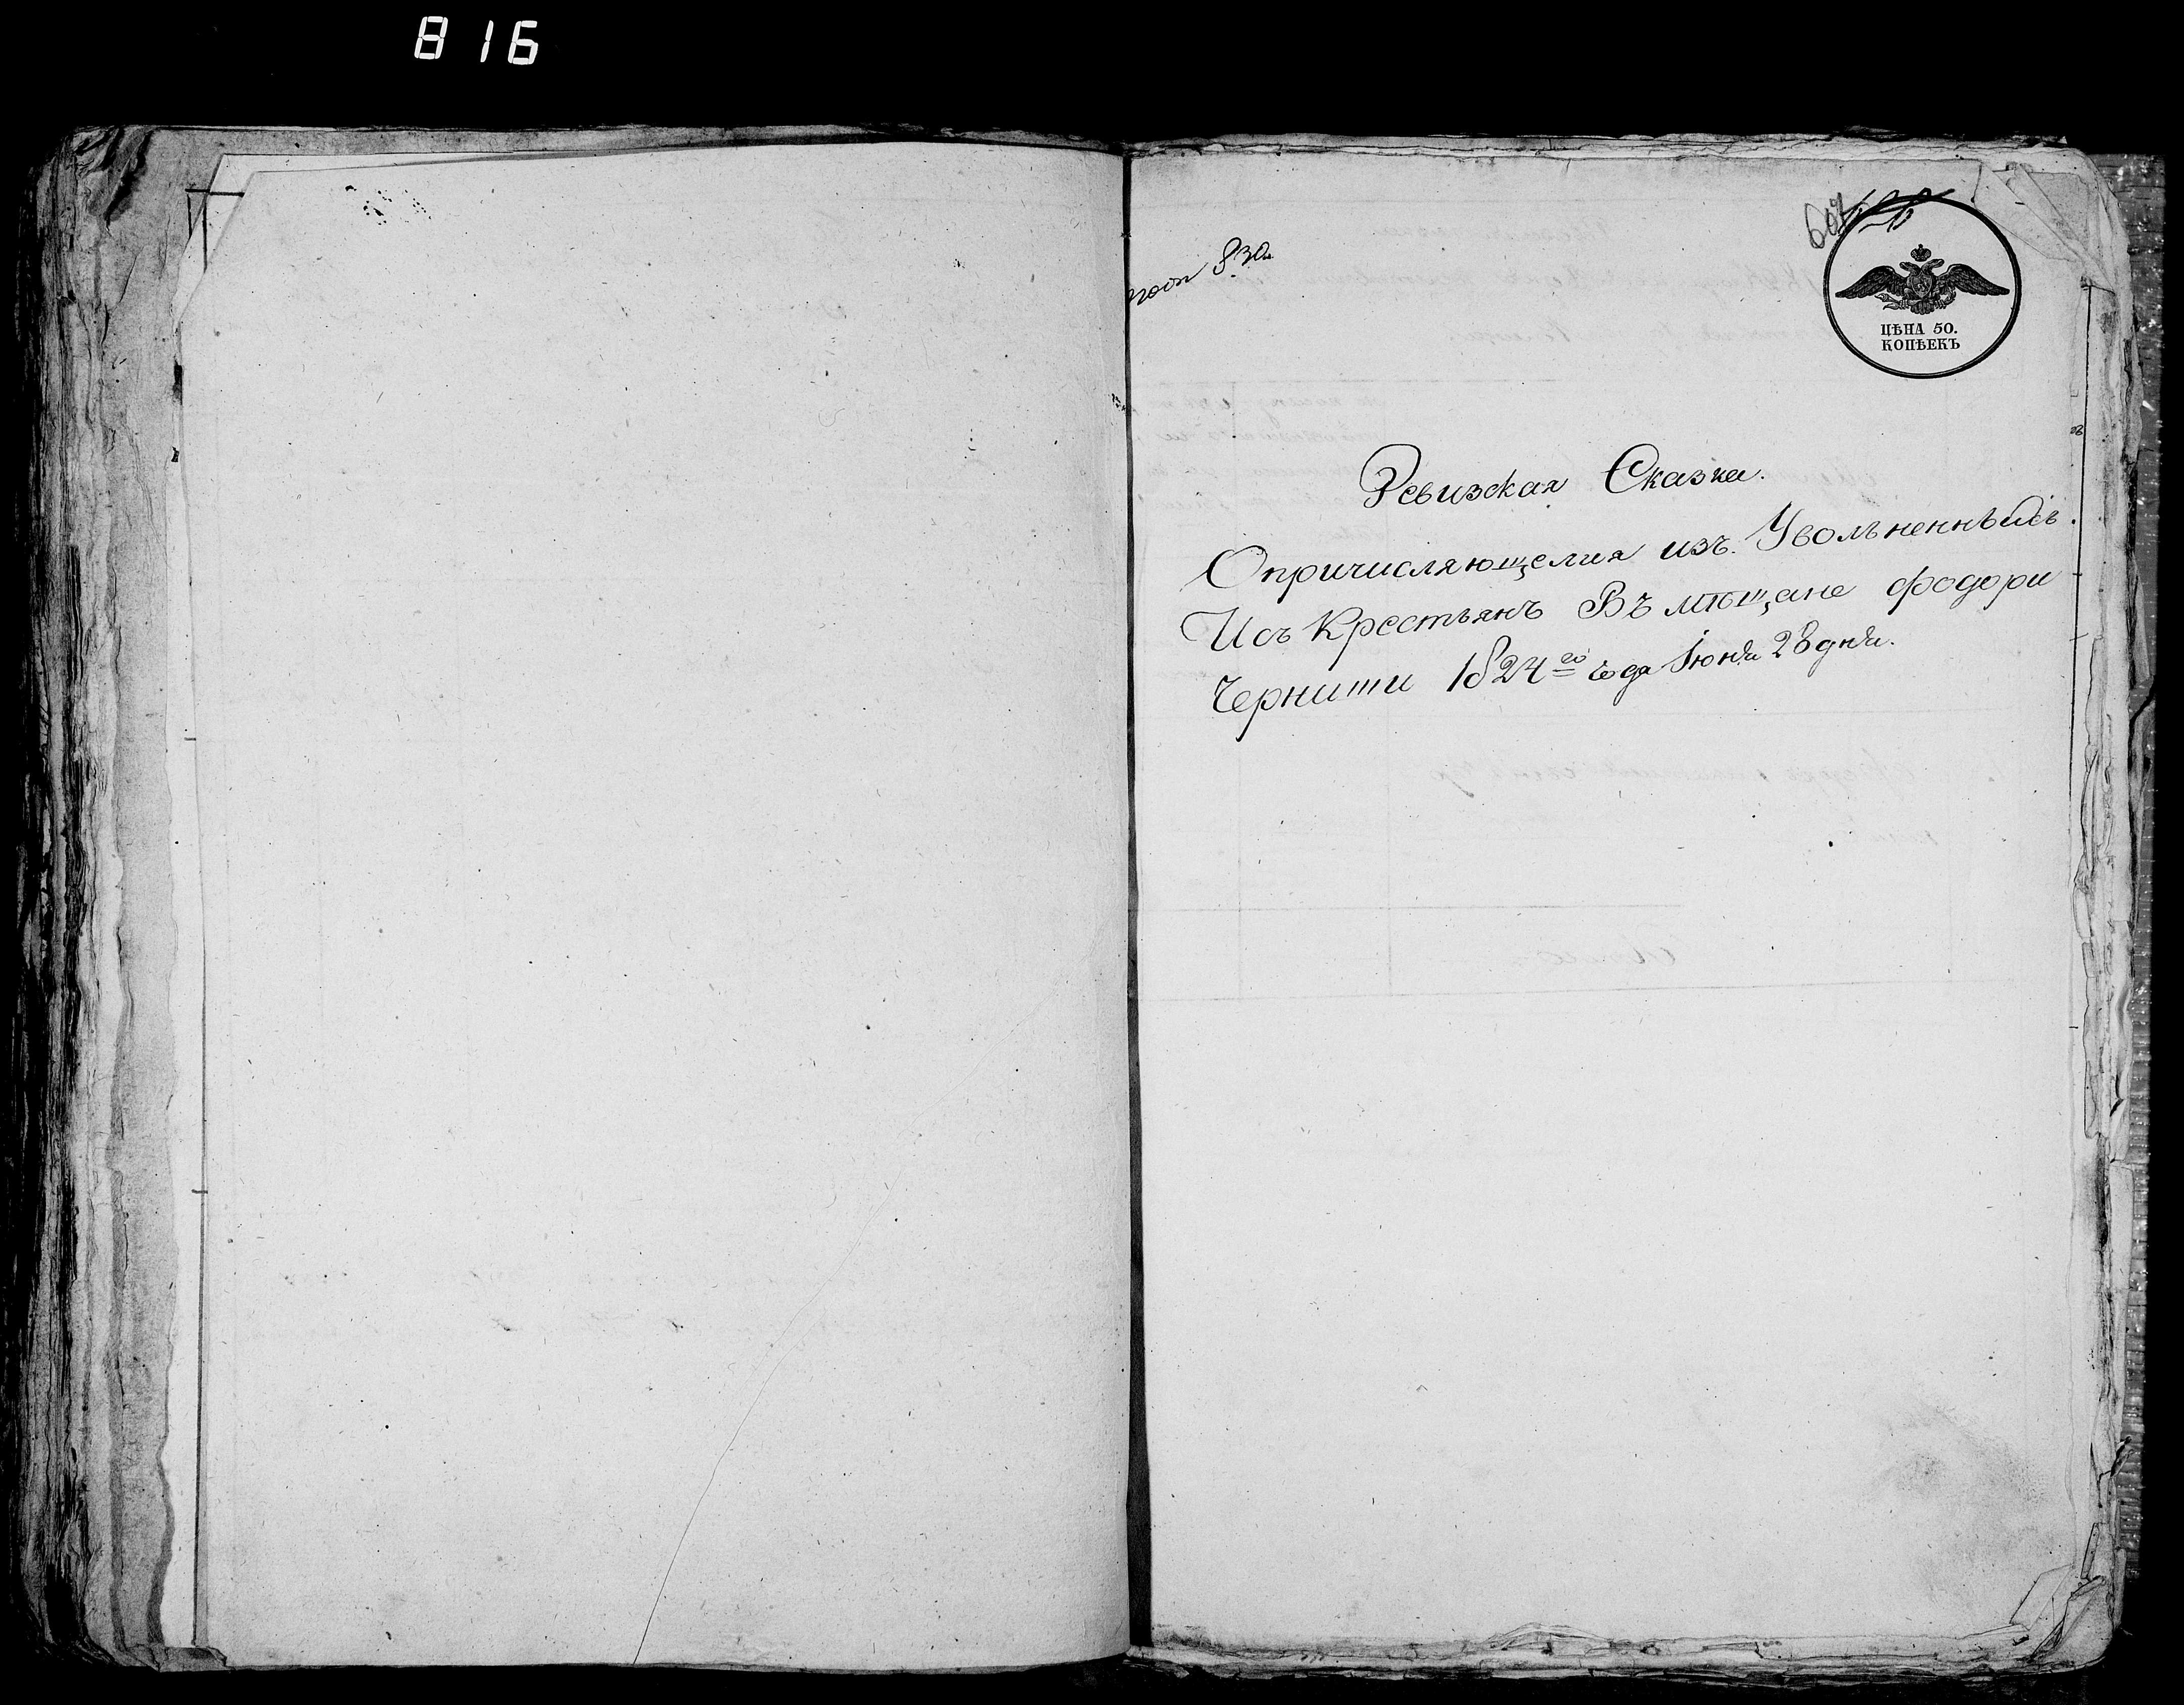 816
607
ЦѢНА 50.
КОПѢЕКЪ
Ревизская Сказка.
О причисляющемся изъ. Увольненныхъ.
Исъ Крестьянъ Въ мѣщане Фодори
Черниши 1824го года Июня 28 дня.